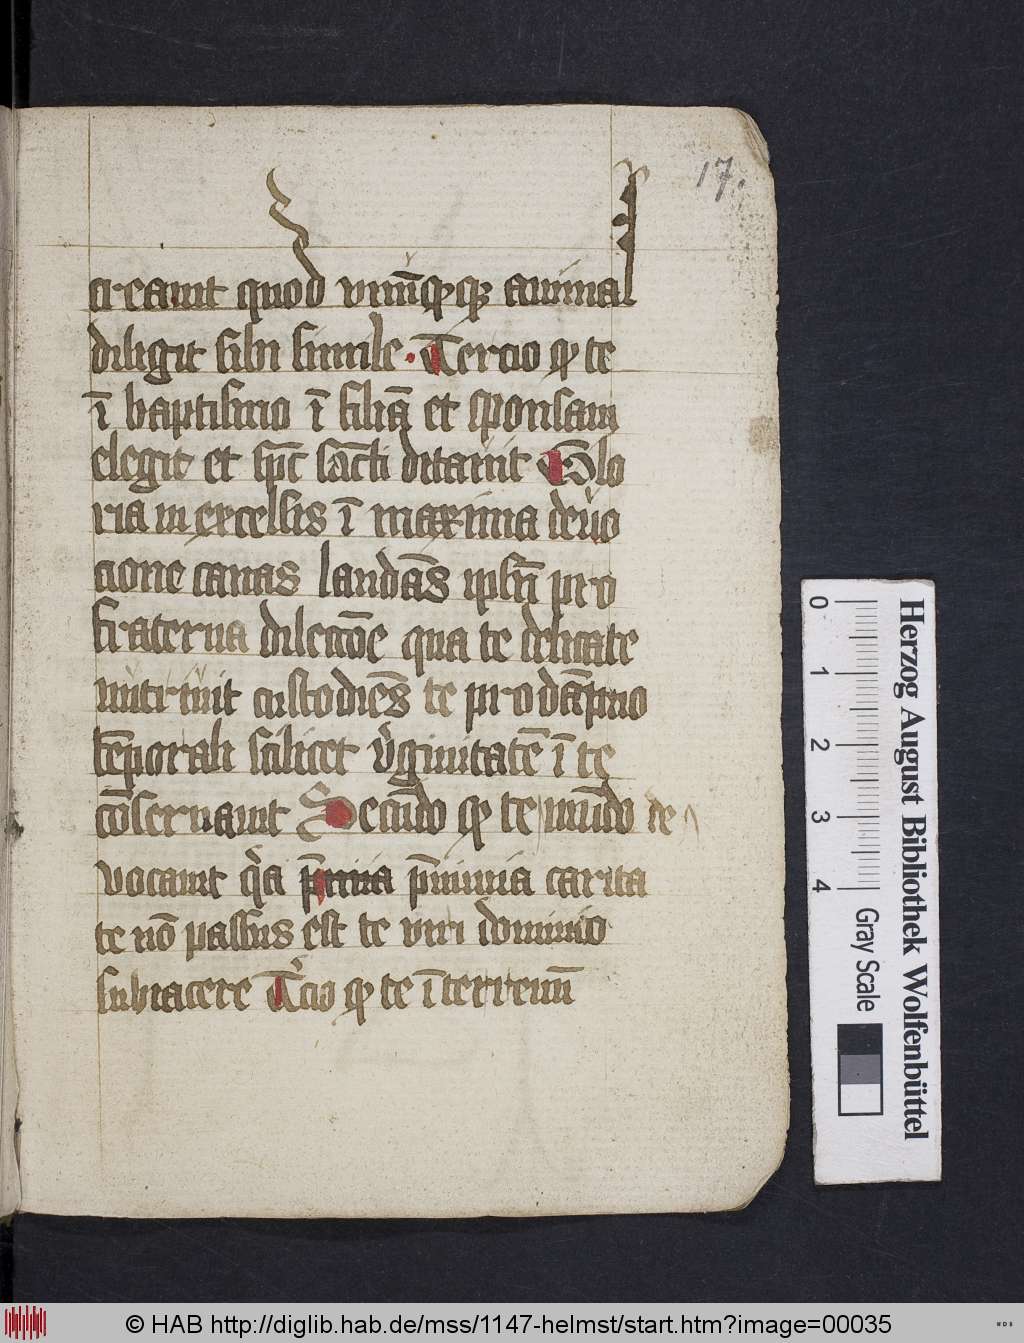 17.
creauit quod vnūqꝙqꝫ animal
diligit sibi simile · Tercio ꝙ te
ī baptismo ī filiā et sponsam
elegit et sp̄c sācti ditauit Glo
ria in excelsis ī maxima deuo
cione canas laudās ipsū pro
fraterna dilectōe qua te delicate
nutriuit custodiēs te pro dāpno
tēporali scilicet v̓ginitatē ī te
cōseruauit Secūdo ꝙ te mūdo de
vocauit qͥa p̄nimia carita
te nō passus est te viri dominio
subiacere T̓cio ꝙ te ī terrenū
Herzog August Bibliothek Wolfenbüttel
0 1 2 3 4 Gray Scale
© HAB http://diglib.hab.de/mss/1147-helmst/start.htm?image=00035